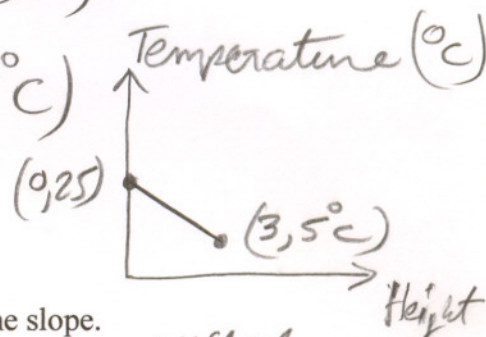 Temperature (°C)
°C)
(0,25)
(3,5°C)
Height
ne slope.